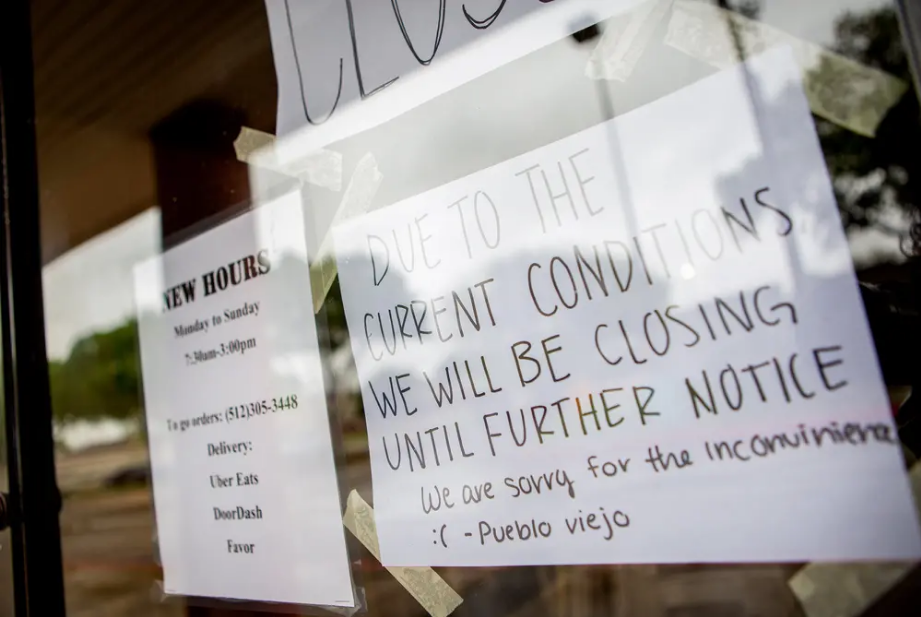 CLOS
NEW HOURS
Monday to Sunday
7:30am-3:00pm
To go orders: (512)305-3448
Delivery:
Uber Eats
DoorDash
Favor
DUE TO THE
CURRENT CONDITIONS
WE WILL BE CLOSING
UNTIL FURTHER NOTICE
We are sorry for the inconvinience
:( -Pueblo viejo